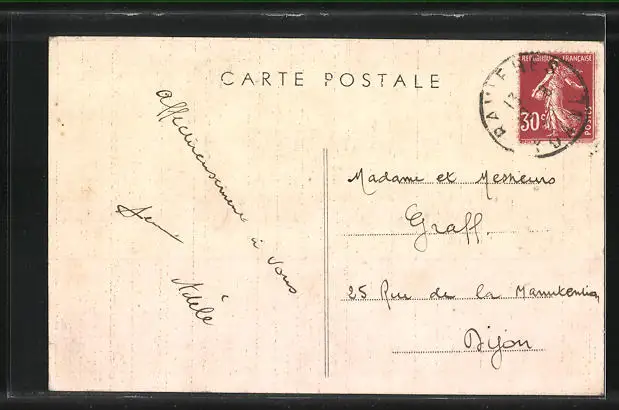 CARTE POSTALE
REPUBLIQUE FRANÇAISE
30c
POSTES
Affectueusement à vous
Adèle
Madame et Messieurs
Graff.
25 Rue de la Manutention
Dijon